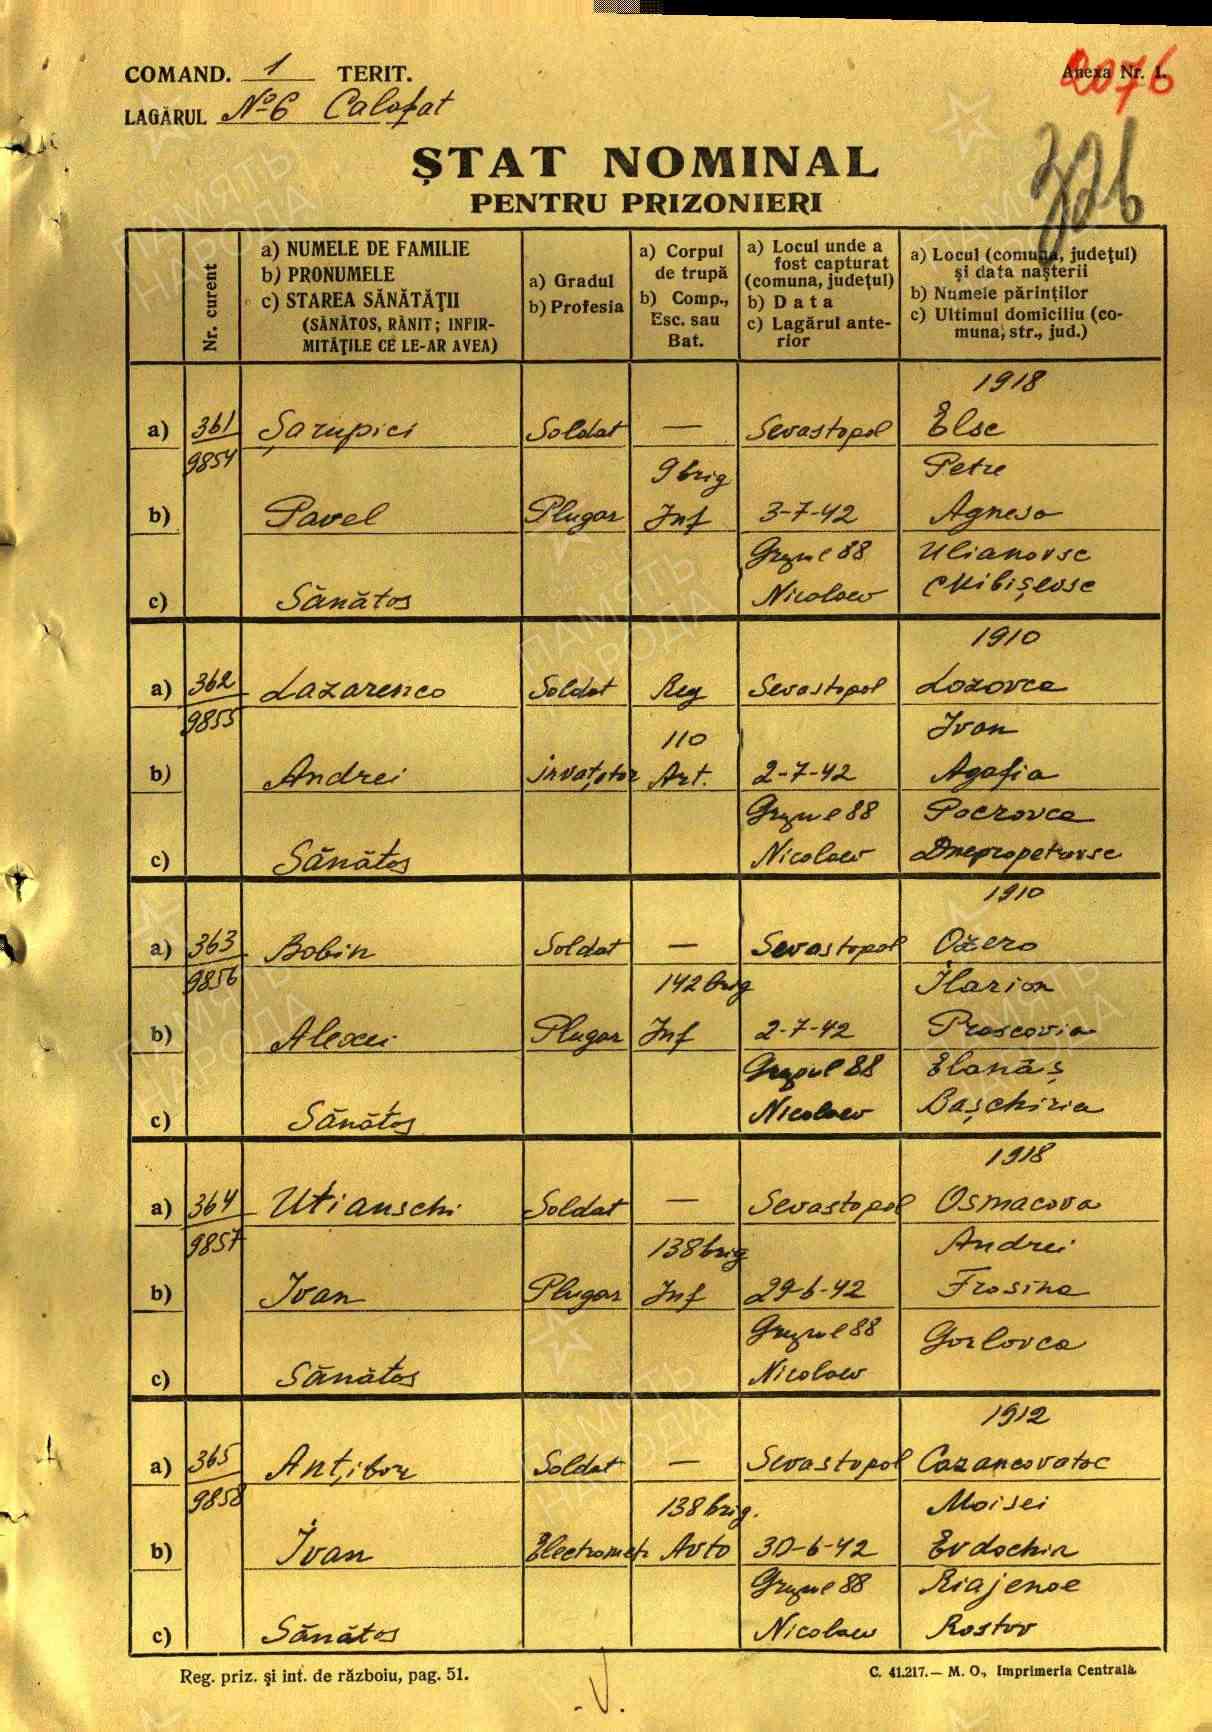 COMAND. 1 TERIT.
Anexa Nr. 1.
2076
LAGĂRUL No 6 Calafat
326
ȘTAT NOMINAL
PENTRU PRIZONIERI
Nr. curent
a) NUMELE DE FAMILIE
b) PRONUMELE
c) STAREA SĂNĂTĂȚII
(SĂNĂTOS, RĂNIT; INFIR-
MITĂȚILE CE LE-AR AVEA)
a) Gradul
b) Profesia
a) Corpul
de trupă
b) Comp.,
Esc. sau
Bat.
a) Locul unde a
fost capturat
(comuna, județul)
b) Data
c) Lagărul ante-
rior
a) Locul (comuna, județul)
și data nașterii
b) Numele părinților
c) Ultimul domiciliu (co-
muna, str., jud.)
1918
a) 361 Șarupici Soldat — Sevastopol Else
9854 9 brig Petre
b) Pavel Plugar Inf 3-7-42 Agnesa
Grupul 88 Ulianovsc
c) Sănătos Nicolaev
1910
a) 362 Lazarenco Soldat Reg Sevastopol Lozovca
9855 110 Ivan
b) Andrei invațator Art. 2-7-42 Agafia
Grupul 88 Pocrovca
c) Sănătos Nicolaev Dnepropetrovsc
1910
a) 363 Bobin Soldat — Sevastopol Ozero
9856 142 brig Ilarion
b) Alexei Plugar Inf 2-7-42 Proscovia
Grupul 88 Elanăș
c) Sănătos Nicolaev Bașchiria
1918
a) 364 Utianschi Soldat — Sevastopol Osmacova
9857 138 brig Andrei
b) Ivan Plugar Inf 29-6-42 Frosina
Grupul 88 Gorlovca
c) Sănătos Nicolaev
1912
a) 365 Anțibor Soldat — Sevastopol Cazancovatoc
9858 138 brig. Moisei
b) Ivan Electromet Avto 30-6-42 Evdochia
Grupul 88 Riajenoe
c) Sănătos Nicolaev Rostov
Reg. priz. și int. de războiu, pag. 51.
C. 41.217.— M. O., Imprimeria Centrală.
ПАМЯТЬ
НАРОДА